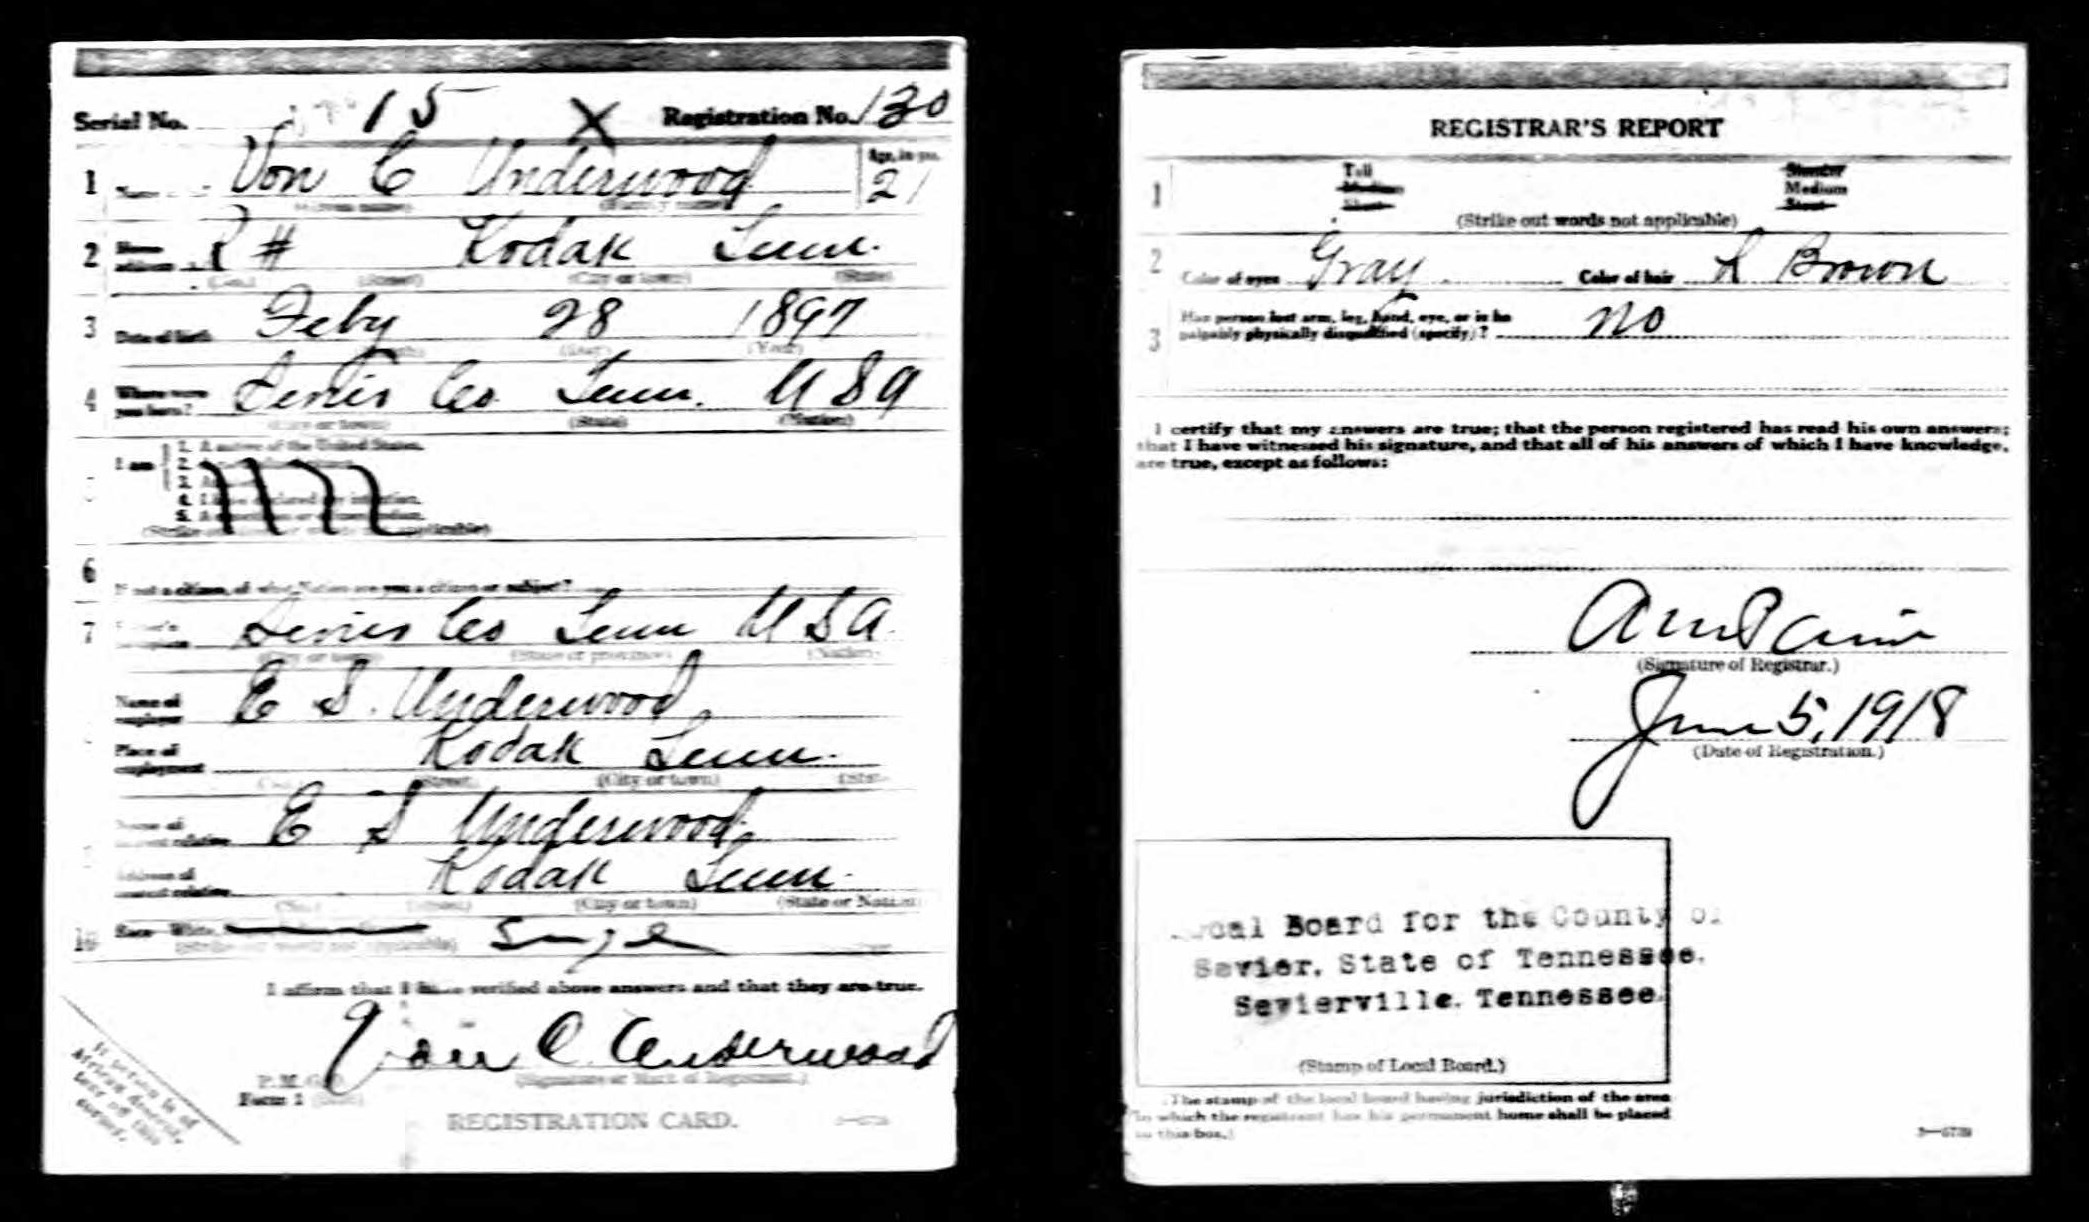 Serial No. 15 X Registration No. 130
1 Name Von C Underwood Age, in yrs. 21
(Given name) (Family name)
2 Home address R # Kodak Tenn.
(No.) (Street) (City or town) (State)
3 Date of birth Feby 28 1897
(Month) (Day) (Year)
4 Where were you born? Sevier Co Tenn. U S A
(City or town) (State) (Nation)
I am 1. A native of the United States.
2.
3.
4. I have declared my intention.
5.
6 If not a citizen, of what Nation are you a citizen or subject?
7 Sevier Co Tenn U S A.
(City or town) (State or province) (Nation)
Name of employer E S. Underwood
Place of employment Kodak Tenn.
(No.) (Street) (City or town) (State)
Name of nearest relative E S Underwood
Address of nearest relative Kodak Tenn.
(No.) (Street) (City or town) (State or Nation)
10 Race White, Single
(Strike out words not applicable)
I affirm that I have verified above answers and that they are true.
Von C. Underwood
(Signature or Mark of Registrant.)
P. M. G. O.
Form 1
REGISTRATION CARD.
If person is of
African descent,
tear off this
corner.
REGISTRAR'S REPORT
1 Tall Slender
Medium Medium
Short Stout
(Strike out words not applicable)
2 Color of eyes Gray Color of hair L Brown
3 Has person lost arm, leg, hand, eye, or is he
palpably physically disqualified (specify)? no
I certify that my answers are true; that the person registered has read his own answers;
that I have witnessed his signature, and that all of his answers of which I have knowledge,
are true, except as follows:
(Signature of Registrar.)
June 5, 1918
(Date of Registration.)
Local Board for the County of
Sevier, State of Tennessee.
Sevierville, Tennessee.
(Stamp of Local Board.)
(The stamp of the local board having jurisdiction of the area
in which the registrant has his permanent home shall be placed
in this box.)